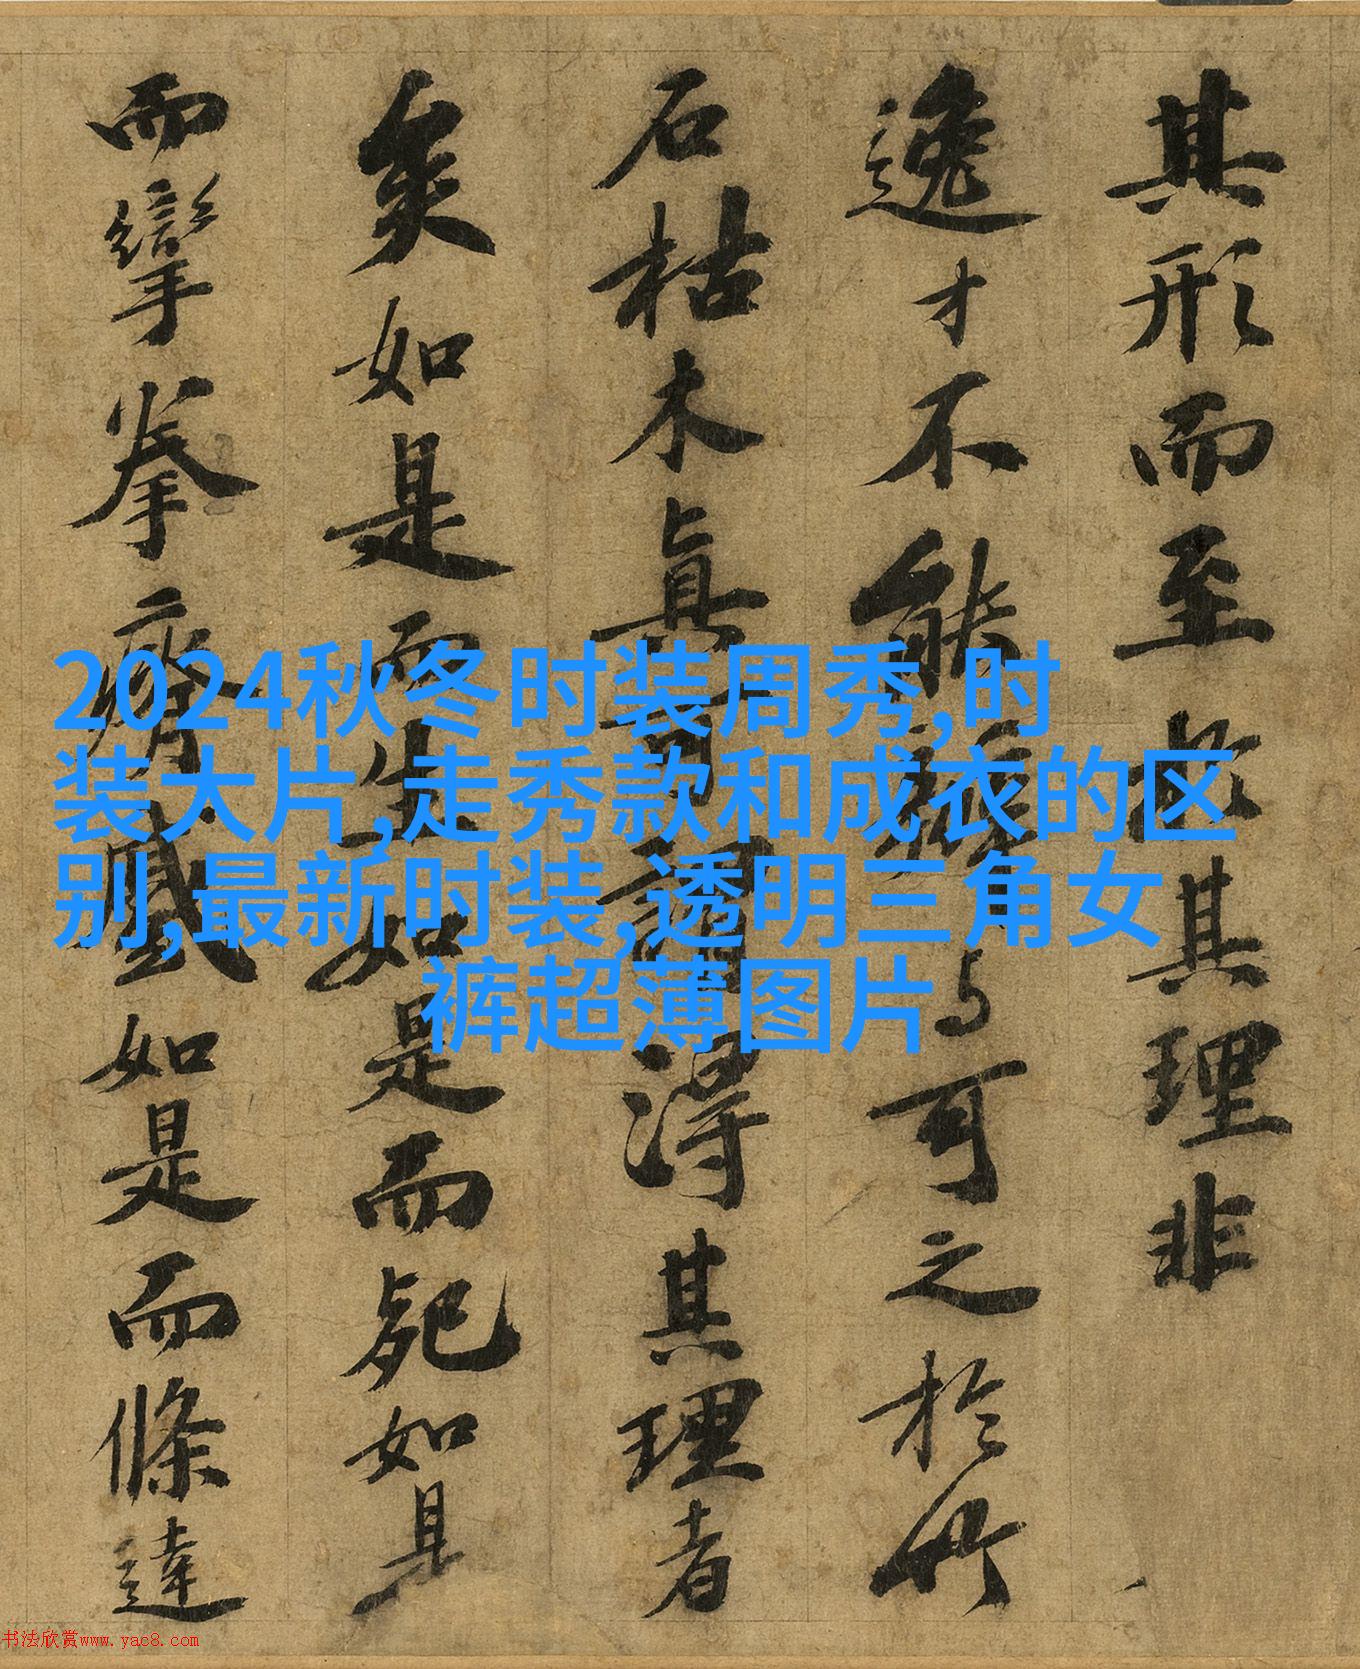 其形而至於其理非
逸才不能與可之於竹
石枯木真可謂得其理者
矣如是而生如是而死如是
而攣拳瘠蹙如是而條達
2024秋冬时装周秀,时
装大片,走秀款和成衣的区
别,最新时装,透明三角女
裤超薄图片
书法欣赏www.yac8.com